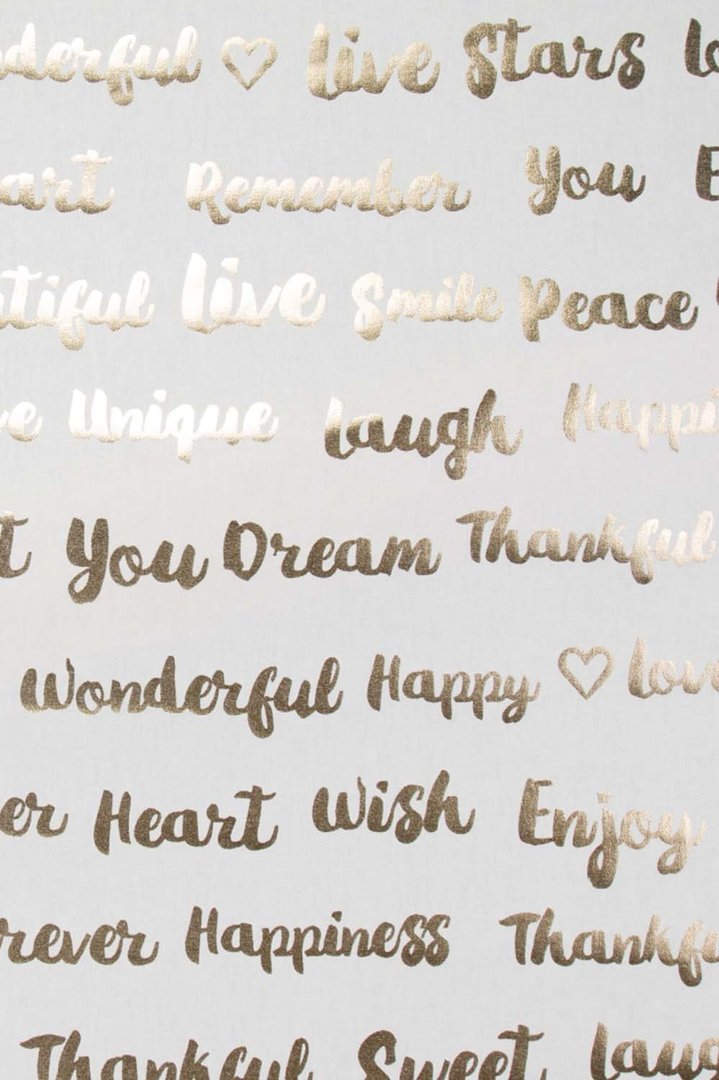 derful ♡ live Stars lo
art Remember You E
tiful live Smile Peace
e Unique laugh Happi
t You Dream Thankful
Wonderful Happy ♡ love
er Heart Wish Enjoy
rever Happiness Thankfu
Thankful Sweet laug